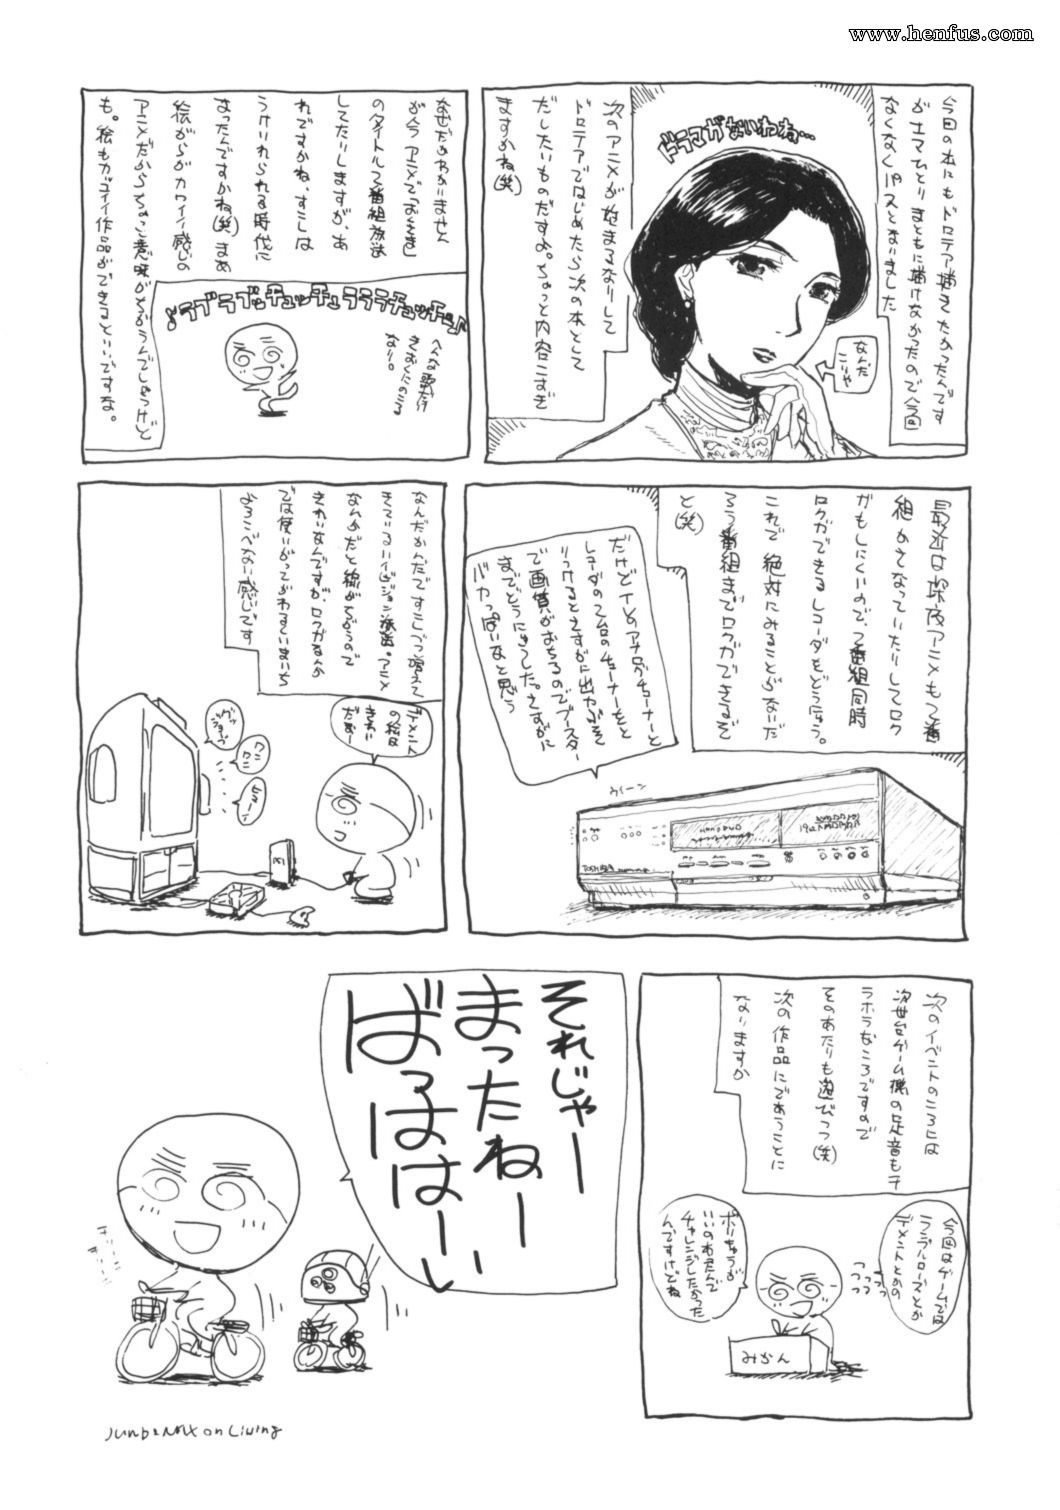 www.henfus.com
今回の本にもドロテア描きたかったんです
がナマひとりまともに描けなかったので今回
なくなくパスとなりました
ドラマがないわね…
なんだ
こりゃ
次のアニメが始まるなりして
ドロテアではじめたら次の本として
だしたいものだすよ。ちょっと内容こすぎ
ますかね(笑)
なぜだかわかりません
が今アニメで
のタイトルで番組放送
してたりしますが、あ
れですかね、すこしは
うけいれられる時代に
なったんですかね(笑)まあ
絵がらがカワイイ感じの
アニメだからちょっと意味がちがうんでしょうけど
も。絵もカッコイイ作品ができるといいですな。
♪ラブラブッチュッチュラララチュッチュ♪
へんな歌だけ
きおくにのこる
なり。
最近は深夜アニメも2番
組かさなっていたりしてロク
ガもしにくいので、2番組同時
ロクガできるレコーダをどうにゅう。
これで絶対にみることがないだ
ろう番組までロクガできるぞ
と(笑)
だけどTVのアナログチューナーと
レコーダの2台のチューナーをと
りつけるとさすがに出力ぶそく
で画質がおちるのでブースター
までどうにゅうした。さすがに
バカっぽいなと思う
ウィーン
TOSHIBA
なんだかんだですこしづつ増えて
きているハイビジョン放送。アニメ
なんかだと線がちがうので
きれいなんですが、ロクガなんか
では使いがってがわるくいまいち
よろこべない感じです
デメントの
の絵は
きれい
だなー
グッ
ジョブ
ワン
ワン
ヒューン
次のイベントのころには
次世代ゲーム機の足音もチ
ラホラなころですので
そのあたりも遊びつつ(笑)
次の作品にであうことに
なりますか
今回はゲームでは
ランブルローズとか
デメントとかの
つつつ
つつつ
ボリちゅうが
いいのおたんで
チャレンジしたかった
んですけどね
みかん
それじゃー
まったねー
ばっはは〜い
Junb&Max on Living